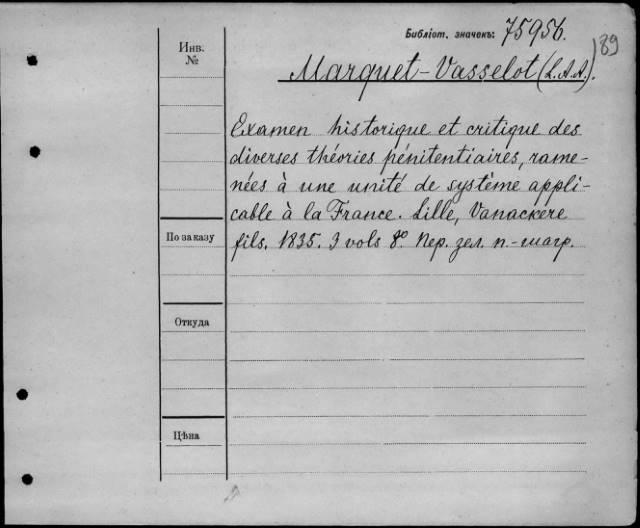 Библіот. значекъ: 75956.
89
Инв.
№
Marquet-Vasselot (L.A.A.).
Examen historique et critique des
diverses théories pénitentiaires, rame-
nées à une unité de système appli-
cable à la France. Lille, Vanackere
По заказу
fils. 1835. 3 vols 8º. Пер. зел. п.-шагр.
Откуда
Цѣна